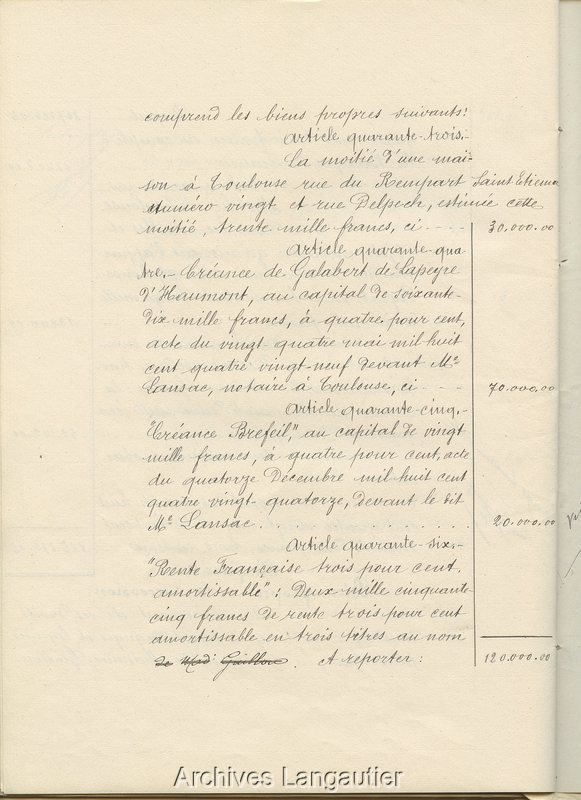 comprend les biens propres suivants:
Article quarante-trois.-
La moitié d'une mai-
son à Toulouse rue du Rempart Saint Etienne
Numéro vingt et rue Delpech, estimée cette
moitié, trente mille francs, ci - - - - 30.000.00
Article quarante-qua
tre.- Créance de Galabert de Lapeyre
d'Haumont, au capital de soixante-
dix mille francs, à quatre pour cent,
acte du vingt quatre mai mil huit
cent quatre vingt-neuf devant Me
Lansac, notaire à Toulouse, ci - - - - 70.000.00
Article quarante-cinq.-
"Créance Brefeil," au capital de vingt
mille francs, à quatre pour cent, acte
du quatorze Décembre mil huit cent
quatre vingt-quatorze, devant le dit
Me Lansac. . . . . . . . . . . . 20.000.00
Article quarante-six.-
"Rente Française trois pour cent.
amortissable": Deux mille cinquante-
cinq francs de rente trois pour cent
amortissable en trois titres au nom
de Mad. Gaillon. A reporter: 120.000.00
Archives Langautier